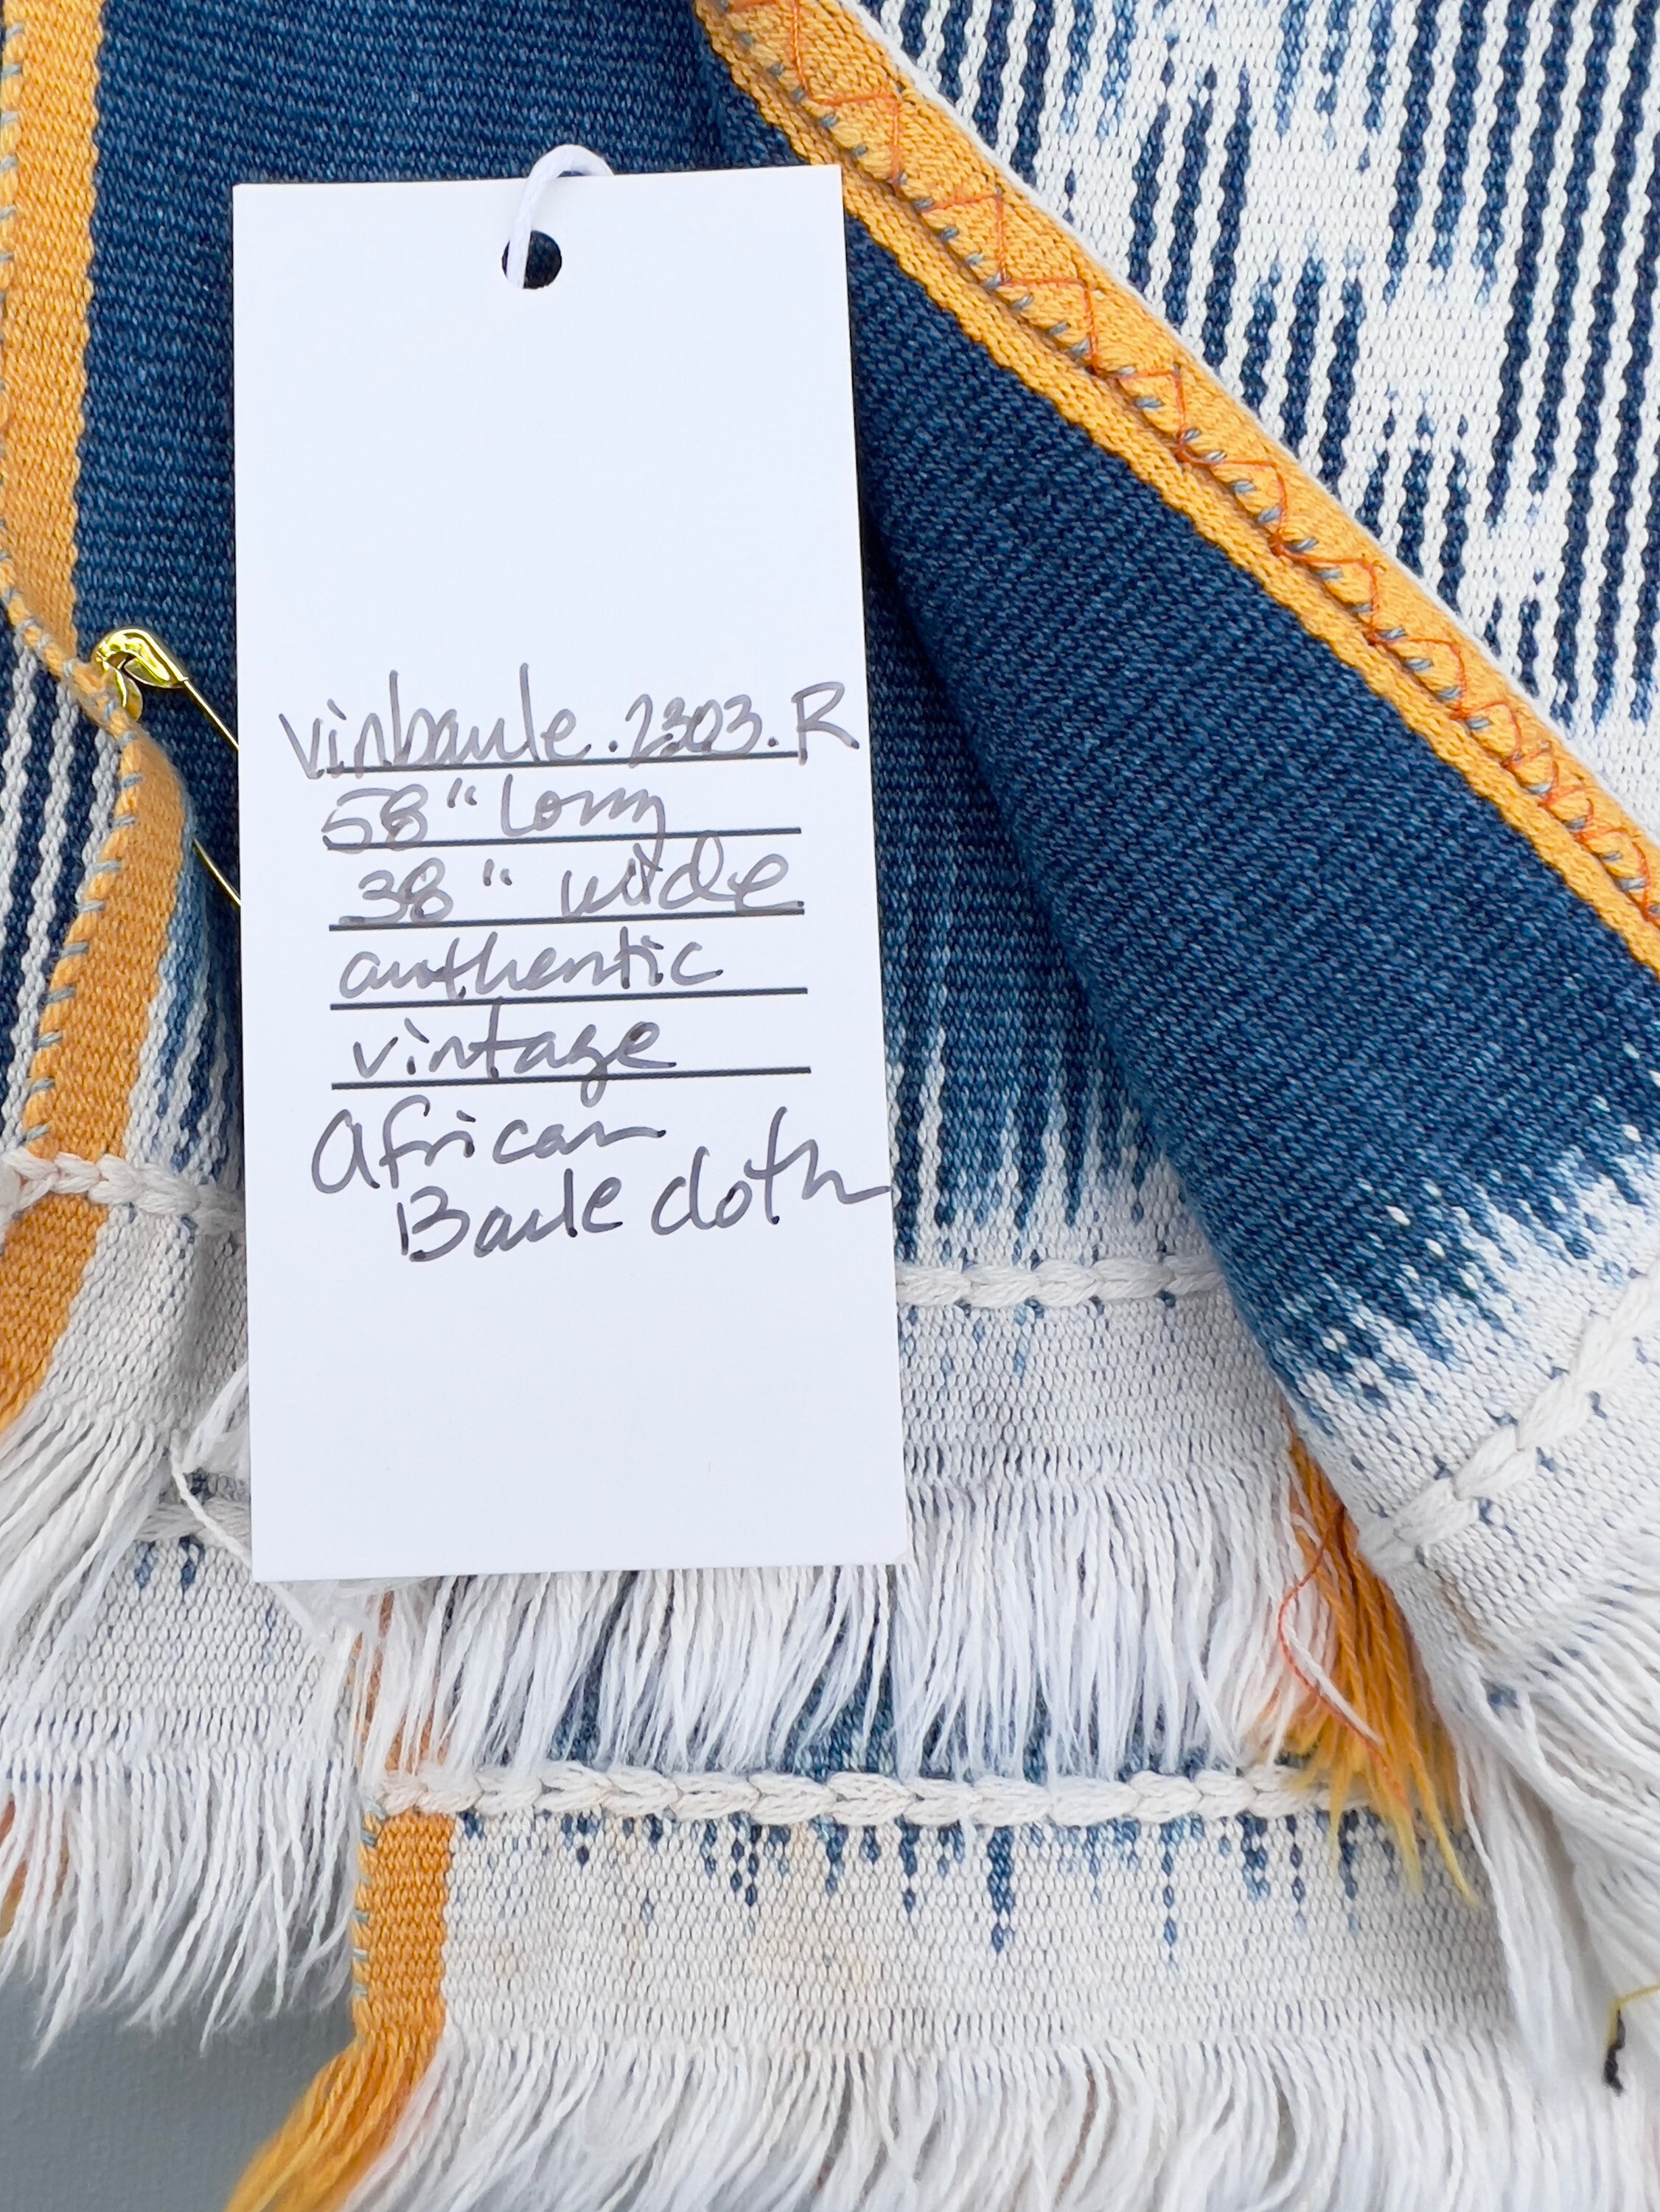 vinbaule.2303.R
58" long
38" wide
authentic
vintage
African
Baule cloth